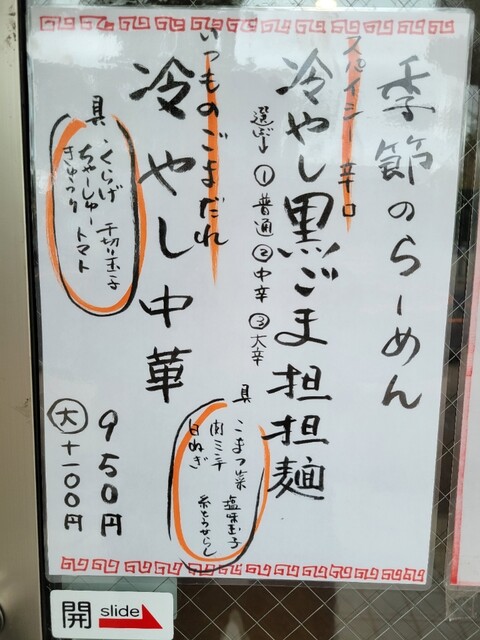 季節のらーめん
スパイシー辛口
冷やし黒ごま担担麺
選べる ①普通 ②中辛 ③大辛
具
こまつ菜 塩味玉子
肉ミンチ 糸とうがらし
白ねぎ
いつものごまだれ
冷やし中華
具
くらげ 千切り玉子
ちゃーしゅー トマト
きゅうり
950円
大 +100円
開 slide